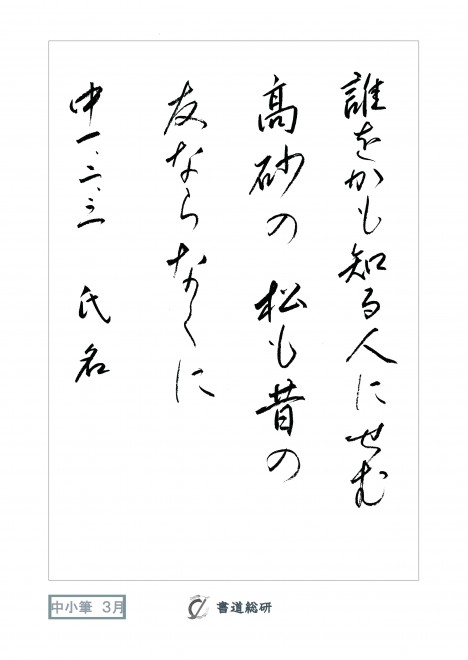 誰をかも知る人にせむ
高砂の松も昔の
友ならなくに
中一、二、三 氏名
中小筆 3月
書道総研